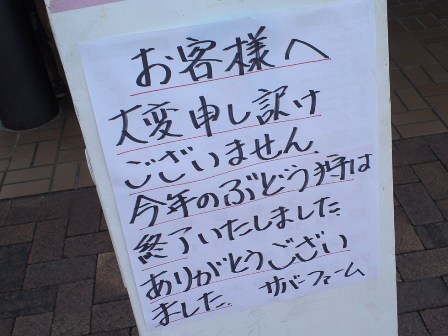 お客様へ
大変申し訳け
ございません.
今年のぶどう狩は
終了いたしました
ありがとうござい
ました. サバーファーム